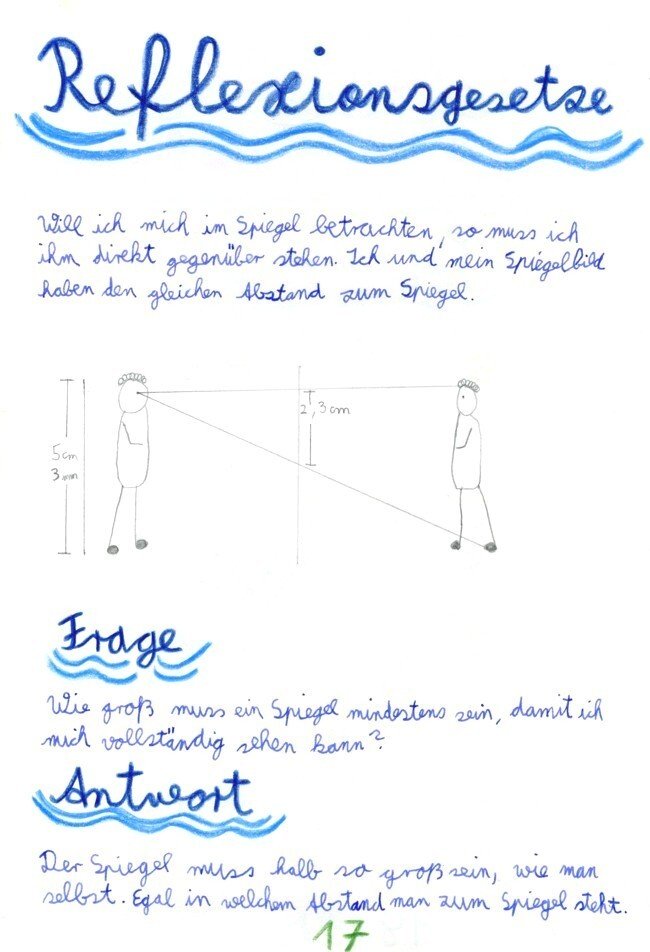 Reflexionsgesetze
Will ich mich im Spiegel betrachten, so muss ich
ihm direkt gegenüber stehen. Ich und mein Spiegelbild
haben den gleichen Abstand zum Spiegel.
2,3cm
5cm
3mm
Frage
Wie groß muss ein Spiegel mindestens sein, damit ich
mich vollständig sehen kann?
Antwort
Der Spiegel muss halb so groß sein, wie man
selbst. Egal in welchem Abstand man zum Spiegel steht.
17